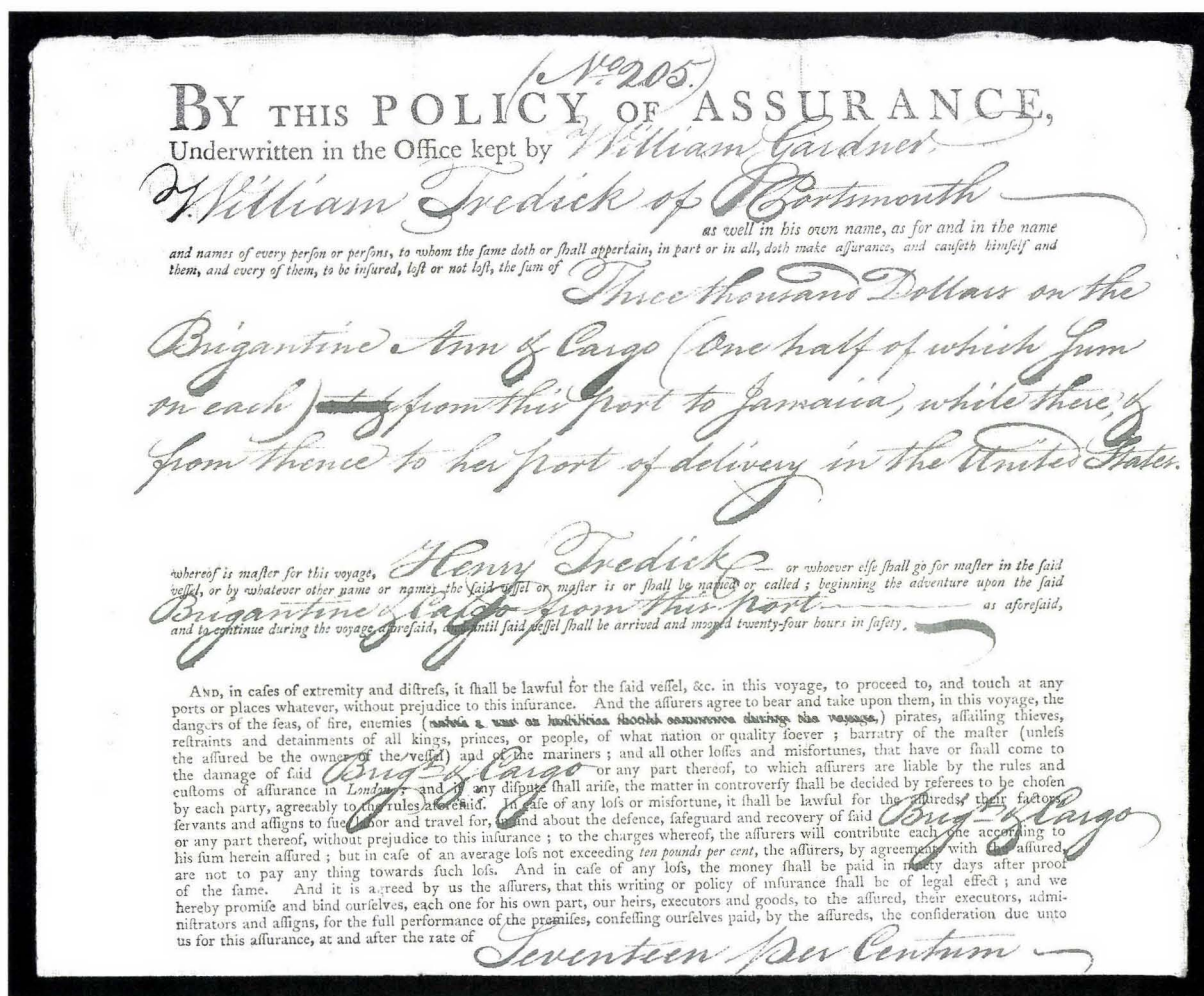 (No. 205.)
BY THIS POLICY OF ASSURANCE,
Underwritten in the Office kept by William Gardner.
William Tredick of Portsmouth
as well in his own name, as for and in the name
and names of every perſon or perſons, to whom the ſame doth or ſhall appertain, in part or in all, doth make aſſurance, and cauſeth himſelf and
them, and every of them, to be inſured, loſt or not loſt, the ſum of
Three thousand Dollars on the
Brigantine Ann & Cargo (One half of which Sum
on each) from this port to Jamaica, while there, &
from thence to her port of delivery in the United States.
whereof is maſter for this voyage, Henry Tredick or whoever elſe ſhall go for maſter in the ſaid
veſſel, or by whatever other name or names the ſaid veſſel or maſter is or ſhall be named or called ; beginning the adventure upon the ſaid
Brigantine & Cargo from this port as aforeſaid,
and to continue during the voyage aforeſaid, and until ſaid veſſel ſhall be arrived and moored twenty-four hours in ſafety.
AND, in caſes of extremity and diſtreſs, it ſhall be lawful for the ſaid veſſel, &c. in this voyage, to proceed to, and touch at any
ports or places whatever, without prejudice to this inſurance. And the aſſurers agree to bear and take upon them, in this voyage, the
dangers of the ſeas, of fire, enemies (              ) pirates, aſſailing thieves,
reſtraints and detainments of all kings, princes, or people, of what nation or quality ſoever ; barratry of the maſter (unleſs
the aſſured be the owner of the veſſel) and of the mariners ; and all other loſſes and misfortunes, that have or ſhall come to
the damage of ſaid Brigt. & Cargo or any part thereof, to which aſſurers are liable by the rules and
cuſtoms of aſſurance in London : and if any diſpute ſhall ariſe, the matter in controverſy ſhall be decided by referees to be choſen
by each party, agreeably to the rules aforeſaid. In caſe of any loſs or misfortune, it ſhall be lawful for the aſſureds, their factors,
ſervants and aſſigns to ſue, labor and travel for, in and about the defence, ſafeguard and recovery of ſaid Brigt. & Cargo
or any part thereof, without prejudice to this inſurance ; to the charges whereof, the aſſurers will contribute each one according to
his ſum herein aſſured ; but in caſe of an average loſs not exceeding ten pounds per cent, the aſſurers, by agreement with the aſſured,
are not to pay any thing towards ſuch loſs. And in caſe of any loſs, the money ſhall be paid in ninety days after proof
of the ſame. And it is agreed by us the aſſurers, that this writing or policy of inſurance ſhall be of legal effect ; and we
hereby promiſe and bind ourſelves, each one for his own part, our heirs, executors and goods, to the aſſured, their executors, admi-
niſtrators and aſſigns, for the full performance of the premiſes, confeſſing ourſelves paid, by the aſſureds, the conſideration due unto
us for this aſſurance, at and after the rate of Seventeen per Centum